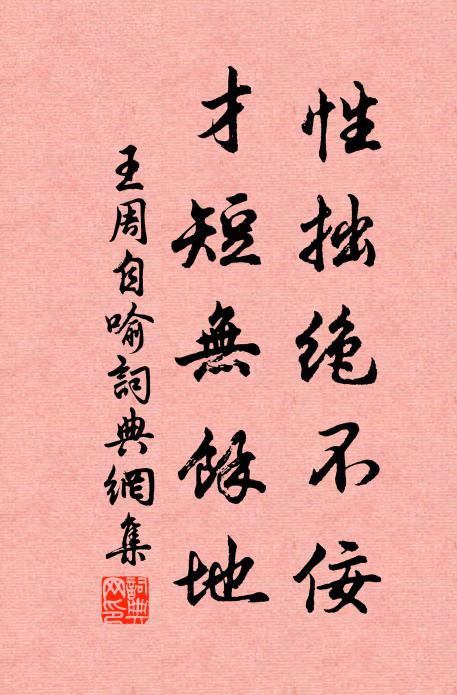 性拙绝不佞
才短無餘地
王周自喻詞典網集
詞典
網印